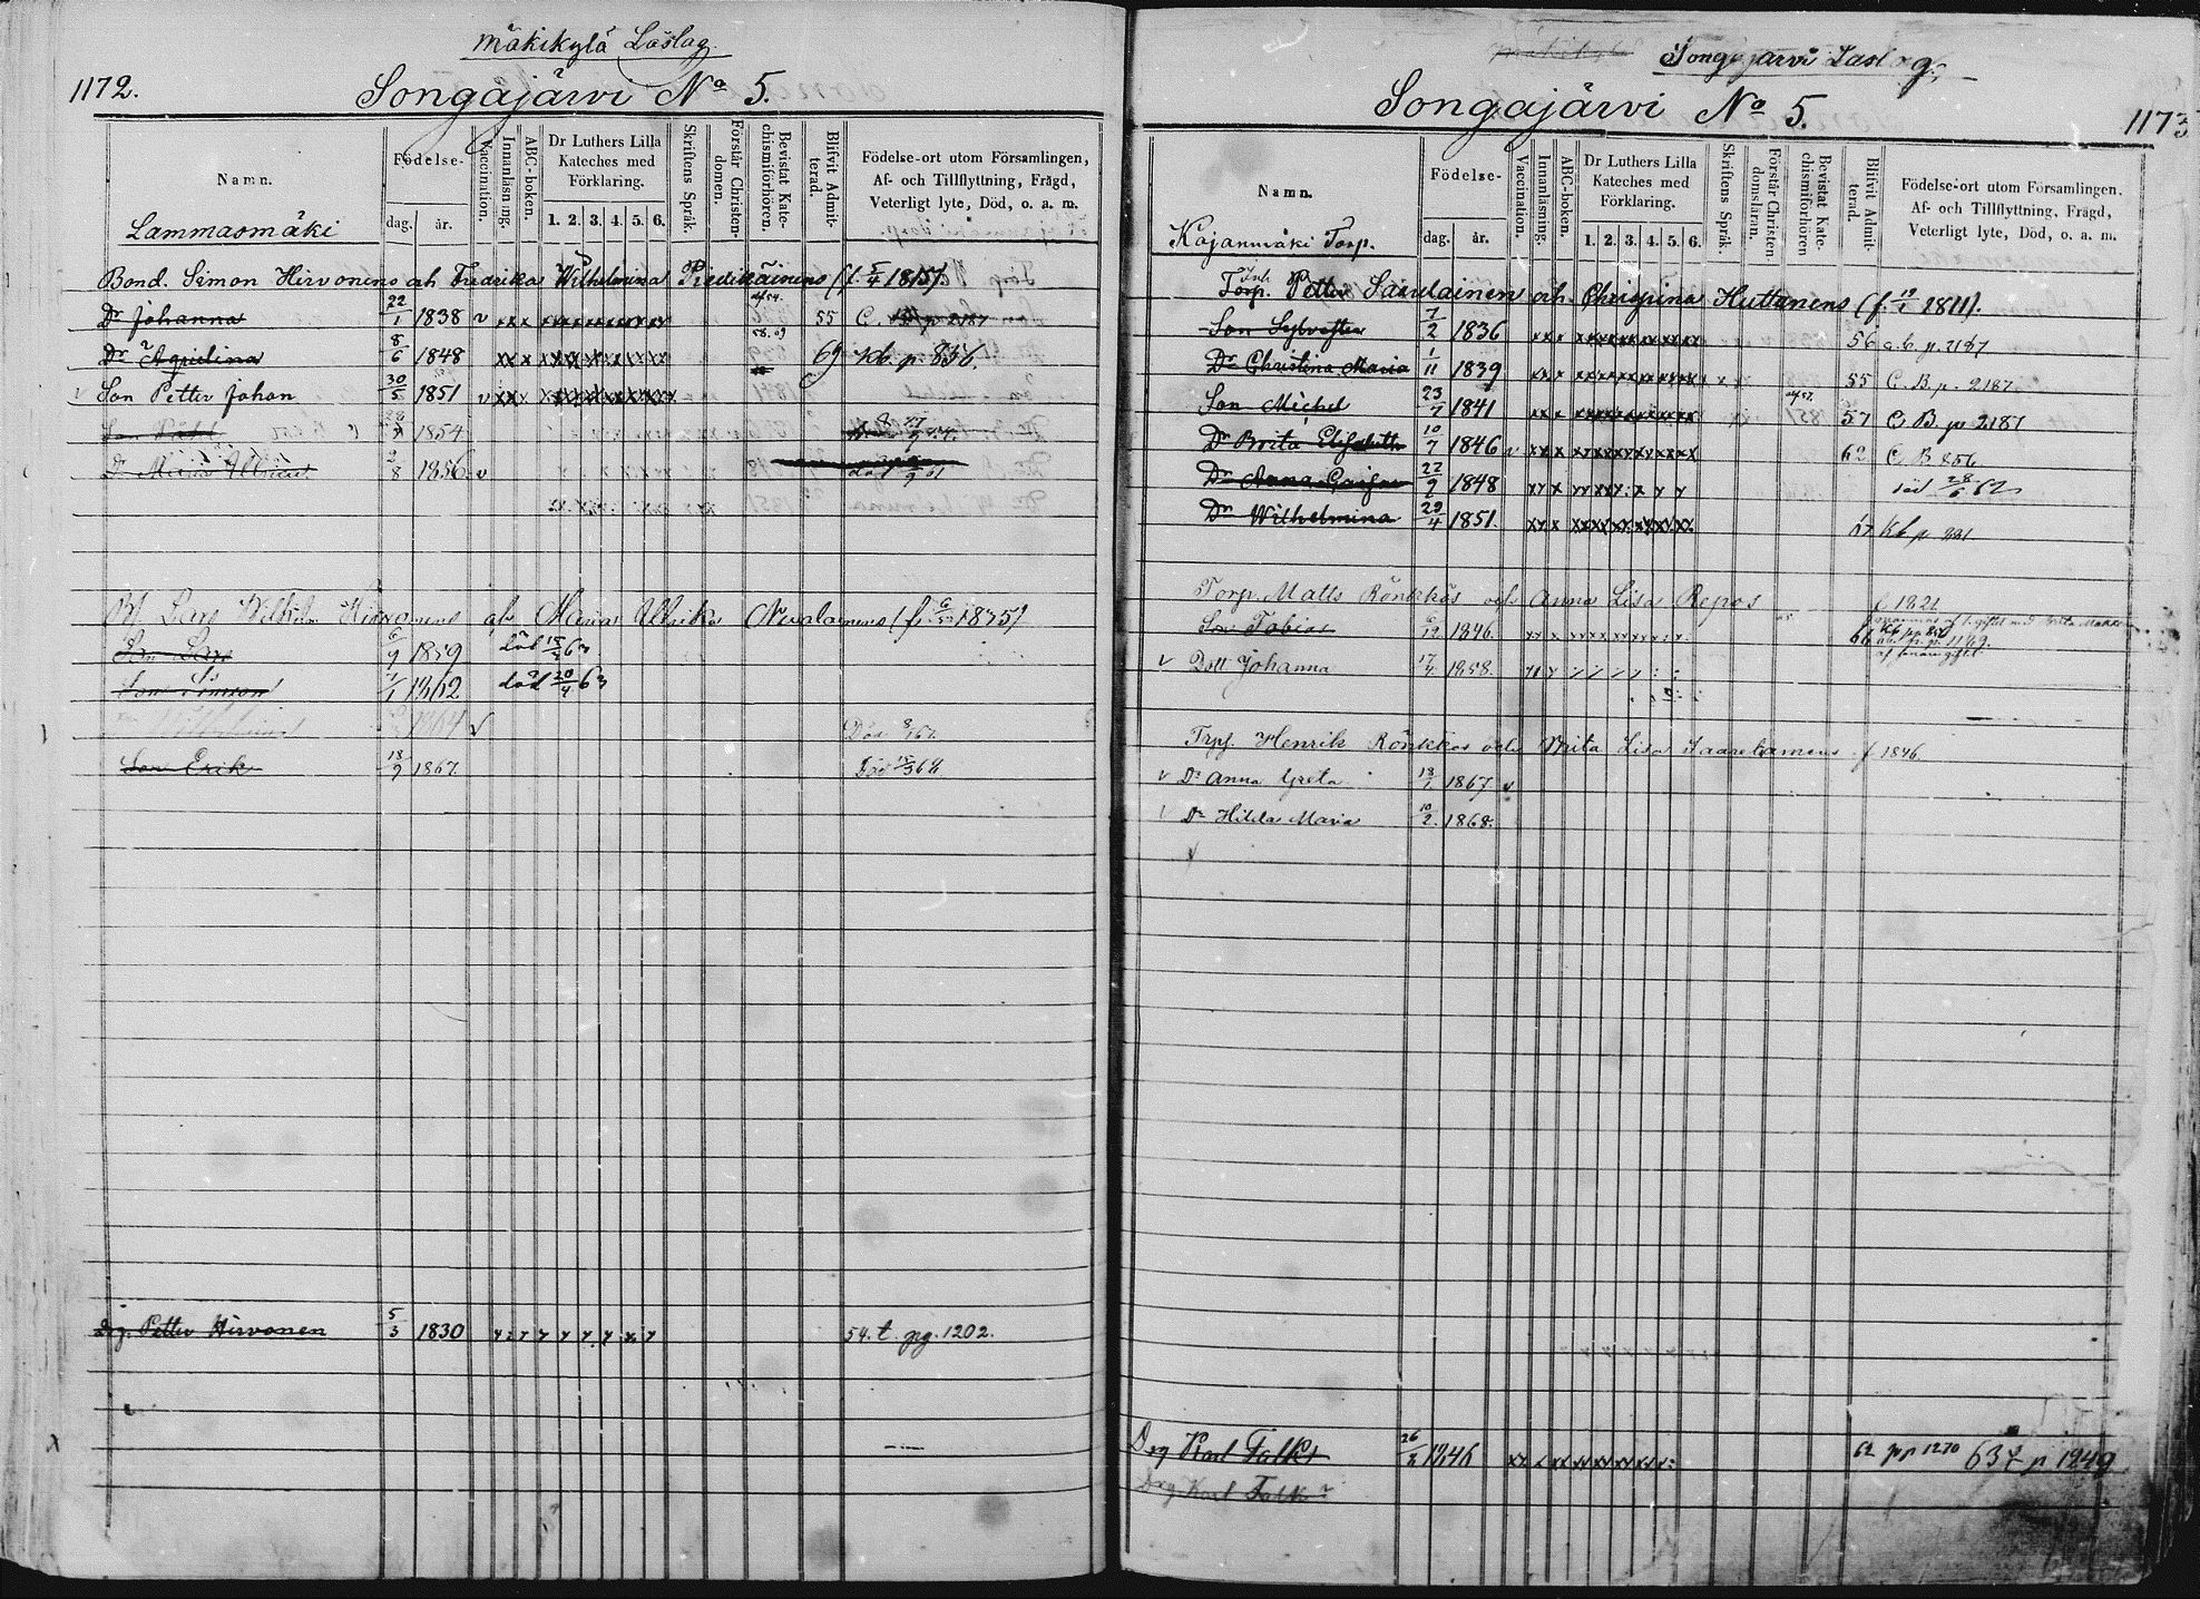 Mäkikylä Läslag.
1172.
Songajärvi No 5.
Namn.
Födelse-
dag.
år.
Vaccination.
Innanläsning.
ABC-boken.
Dr Luthers Lilla
Kateches med
Förklaring.
1. 2. 3. 4. 5. 6.
Skriftens Språk.
Förstår Christen-
domen.
Bevistat Kate-
chismiförhören.
Blifvit Admit-
terad.
Födelse-ort utom Församlingen,
Af- och Tillflyttning, Frägd,
Veterligt lyte, Död, o. a. m.
Lammasmäki
Bond. Simon Hirvonens och Fredrika Wilhelmina Piedikäinens (f. 5/4 1815).
Dr Johanna 22/1 1838 v 55 C. p 2187
Dr Aqvelina 8/6 1848 58. 69 69 p. 856.
Son Petter Johan 30/5 1851 v
Son 1854
Dr Maria Ulrica 2/8 1856 v död
Bf Lars Wilhelm Hirvonens och Maria Ulrika Nevalainens (f. 1835)
Son Lars 6/9 1859 död 63
Son Simon 1/1 1862 död 20/4 63
1864 v Död
Son Erik 18/9 1867. Död 68
Drg. Petter Hirvonen 5/3 1830 54. t. pg. 1202.
Songajärvi Läslag.
Songajärvi No 5.
1173
Namn.
Födelse-
dag.
år.
Vaccination.
Innanläsning.
ABC-boken.
Dr Luthers Lilla
Kateches med
Förklaring.
1. 2. 3. 4. 5. 6.
Skriftens Språk.
Förstår Christen-
domsläran.
Bevistat Kate-
chismiförhören
Blifvit Admit-
terad.
Födelse-ort utom Församlingen,
Af- och Tillflyttning, Frägd,
Veterligt lyte, Död, o. a. m.
Kajanmäki Torp.
Inh.
Torp. Petter Saxulainen och Chrispina Huttunens (f. 1811).
Son Sylvester 7/2 1836 56 c. b. p. 2187
Dr Christina Maria 1/11 1839 55 C. B. p. 2187
Son Michel 23/7 1841 57 C. B. p 2187
Dr Brita Elisabeth 10/7 1846 v 62 C B 856
Dr Anna Caisa 1848 död 28/6 62
Dr Wilhelmina 29/4 1851. 67 Kb p
Torp. Matts Rönkkös och Anna Lisa Repos f. 1821
Son Tobias 1846. 66 Kb p. 856
Dott Johanna 17/4 1858.
Trpf. Henrik Rönkkös och Brita Lisa f 1846.
v Dr Anna Greta 18/1 1867 v
Dr Hilda Maria 10/2. 1868.
Drg Karl Falks 1846 62 pp 1270 63 t p 1249
Drg Karl Falk